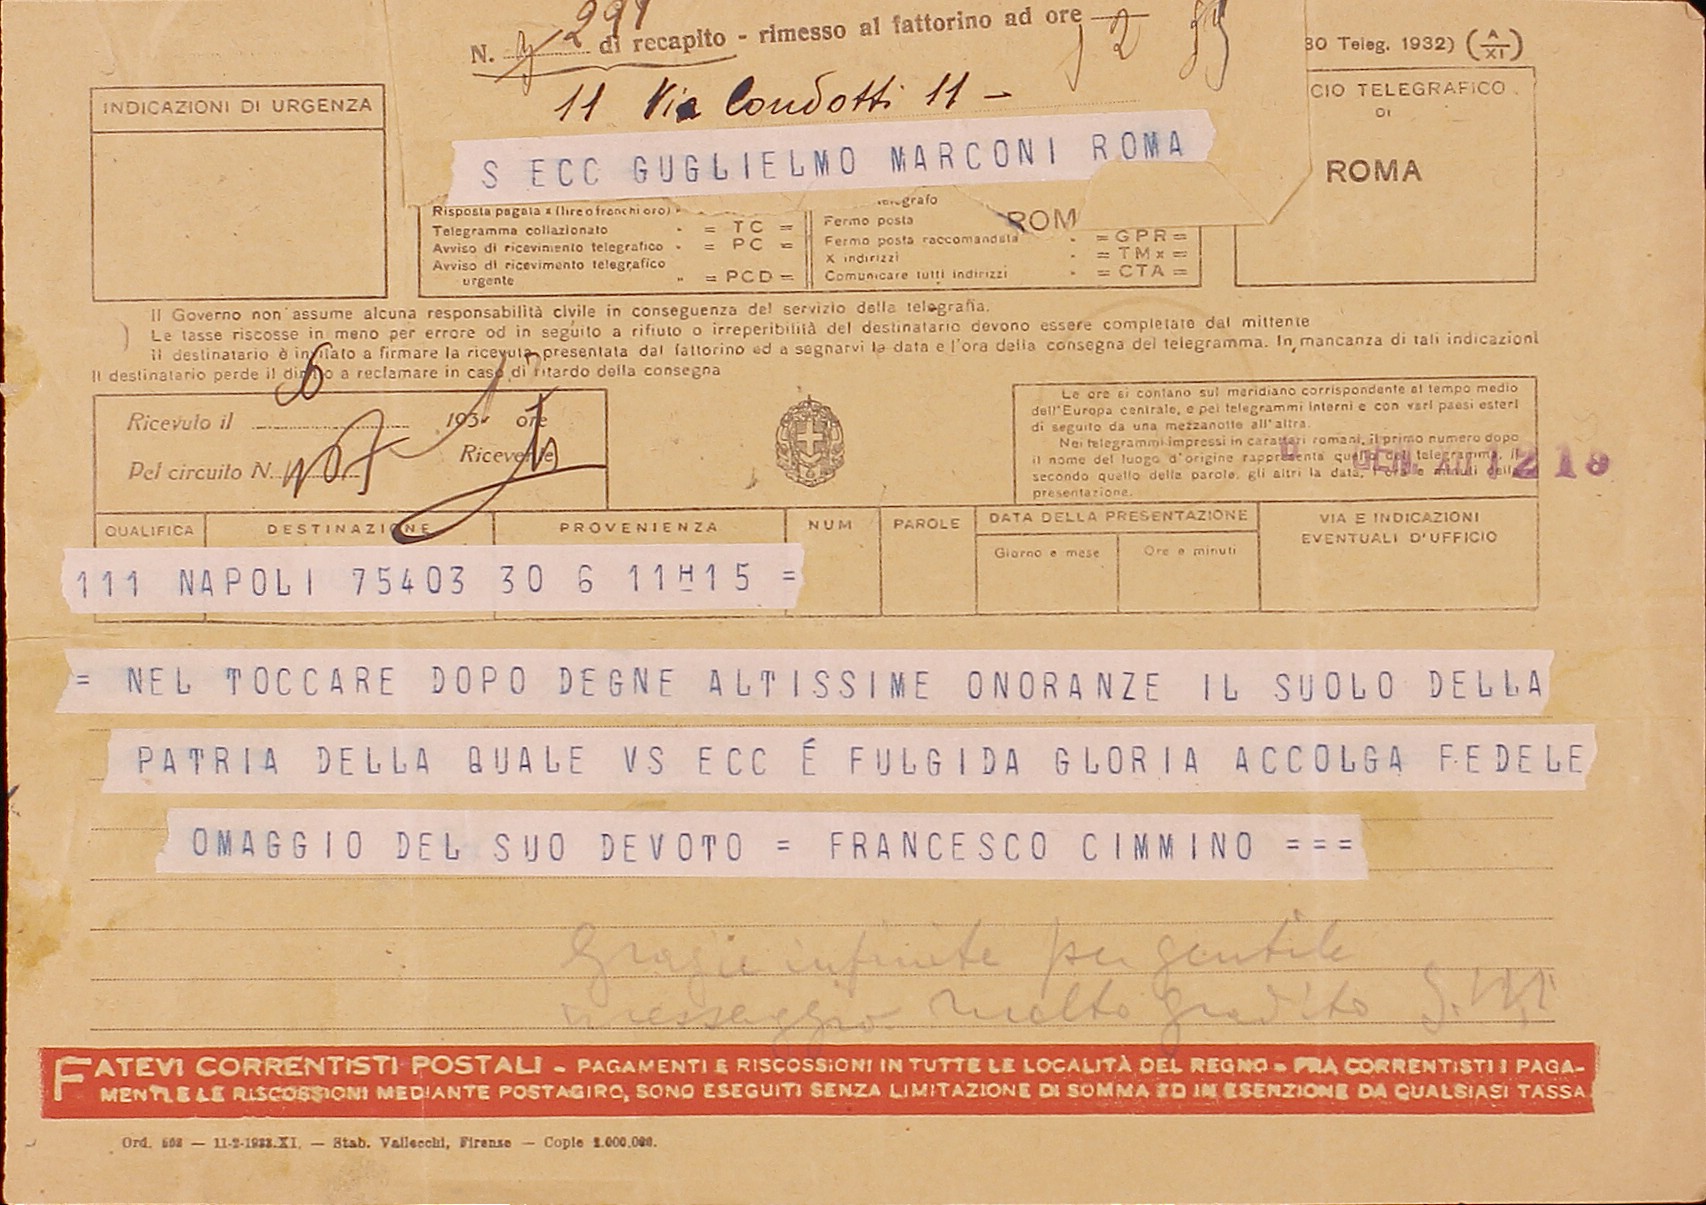 N. 291 di recapito - rimesso al fattorino ad ore 12
30 Teleg. 1932) (A/XI)
11 Via Condotti 11 -
INDICAZIONI DI URGENZA
CIO TELEGRAFICO
DI
ROMA
S ECC GUGLIELMO MARCONI ROMA
Risposta pagata x (lire o franchi oro) -
Telegramma collazionato - = TC =
Avviso di ricevimento telegrafico - = PC =
Avviso di ricevimento telegrafico
urgente " = PCD =
Fermo posta
Fermo posta raccomandata - = GPR =
X indirizzi - = TMx =
Comunicare tutti indirizzi - = CTA =
ROM
Il Governo non assume alcuna responsabilità civile in conseguenza del servizio della telegrafia.
Le tasse riscosse in meno per errore od in seguito a rifiuto o irreperibilità del destinatario devono essere completate dal mittente
Il destinatario è invitato a firmare la ricevuta presentata dal fattorino ed a segnarvi la data e l'ora della consegna del telegramma. In mancanza di tali indicazioni
Il destinatario perde il diritto a reclamare in caso di ritardo della consegna
Ricevuto il 6 193 ore
Pel circuito N. Ricevente
Le ore si contano sul meridiano corrispondente al tempo medio
dell'Europa centrale, e pei telegrammi interni e con vari paesi esteri
di seguito da una mezzanotte all'altra.
Nei telegrammi impressi in caratteri romani, il primo numero dopo
il nome del luogo d'origine rappresenta quello del telegramma, il
secondo quello delle parole, gli altri la data, l'ora e minuti della
presentazione.
QUALIFICA DESTINAZIONE PROVENIENZA NUM PAROLE DATA DELLA PRESENTAZIONE VIA E INDICAZIONI
EVENTUALI D'UFFICIO
Giorno e mese Ore e minuti
111 NAPOLI 75403 30 6 11H15 =
= NEL TOCCARE DOPO DEGNE ALTISSIME ONORANZE IL SUOLO DELLA
PATRIA DELLA QUALE VS ECC É FULGIDA GLORIA ACCOLGA FEDELE
OMAGGIO DEL SUO DEVOTO = FRANCESCO CIMMINO ===
Grazie infinite per gentile
messaggio molto gradito G. M
FATEVI CORRENTISTI POSTALI - PAGAMENTI E RISCOSSIONI IN TUTTE LE LOCALITÀ DEL REGNO - FRA CORRENTISTI I PAGA-
MENTI E LE RISCOSSIONI MEDIANTE POSTAGIRO, SONO ESEGUITI SENZA LIMITAZIONE DI SOMMA ED IN ESENZIONE DA QUALSIASI TASSA
Ord. 508 — 11-2-1933.XI. — Stab. Vallecchi, Firenze — Copie 2.000.000.